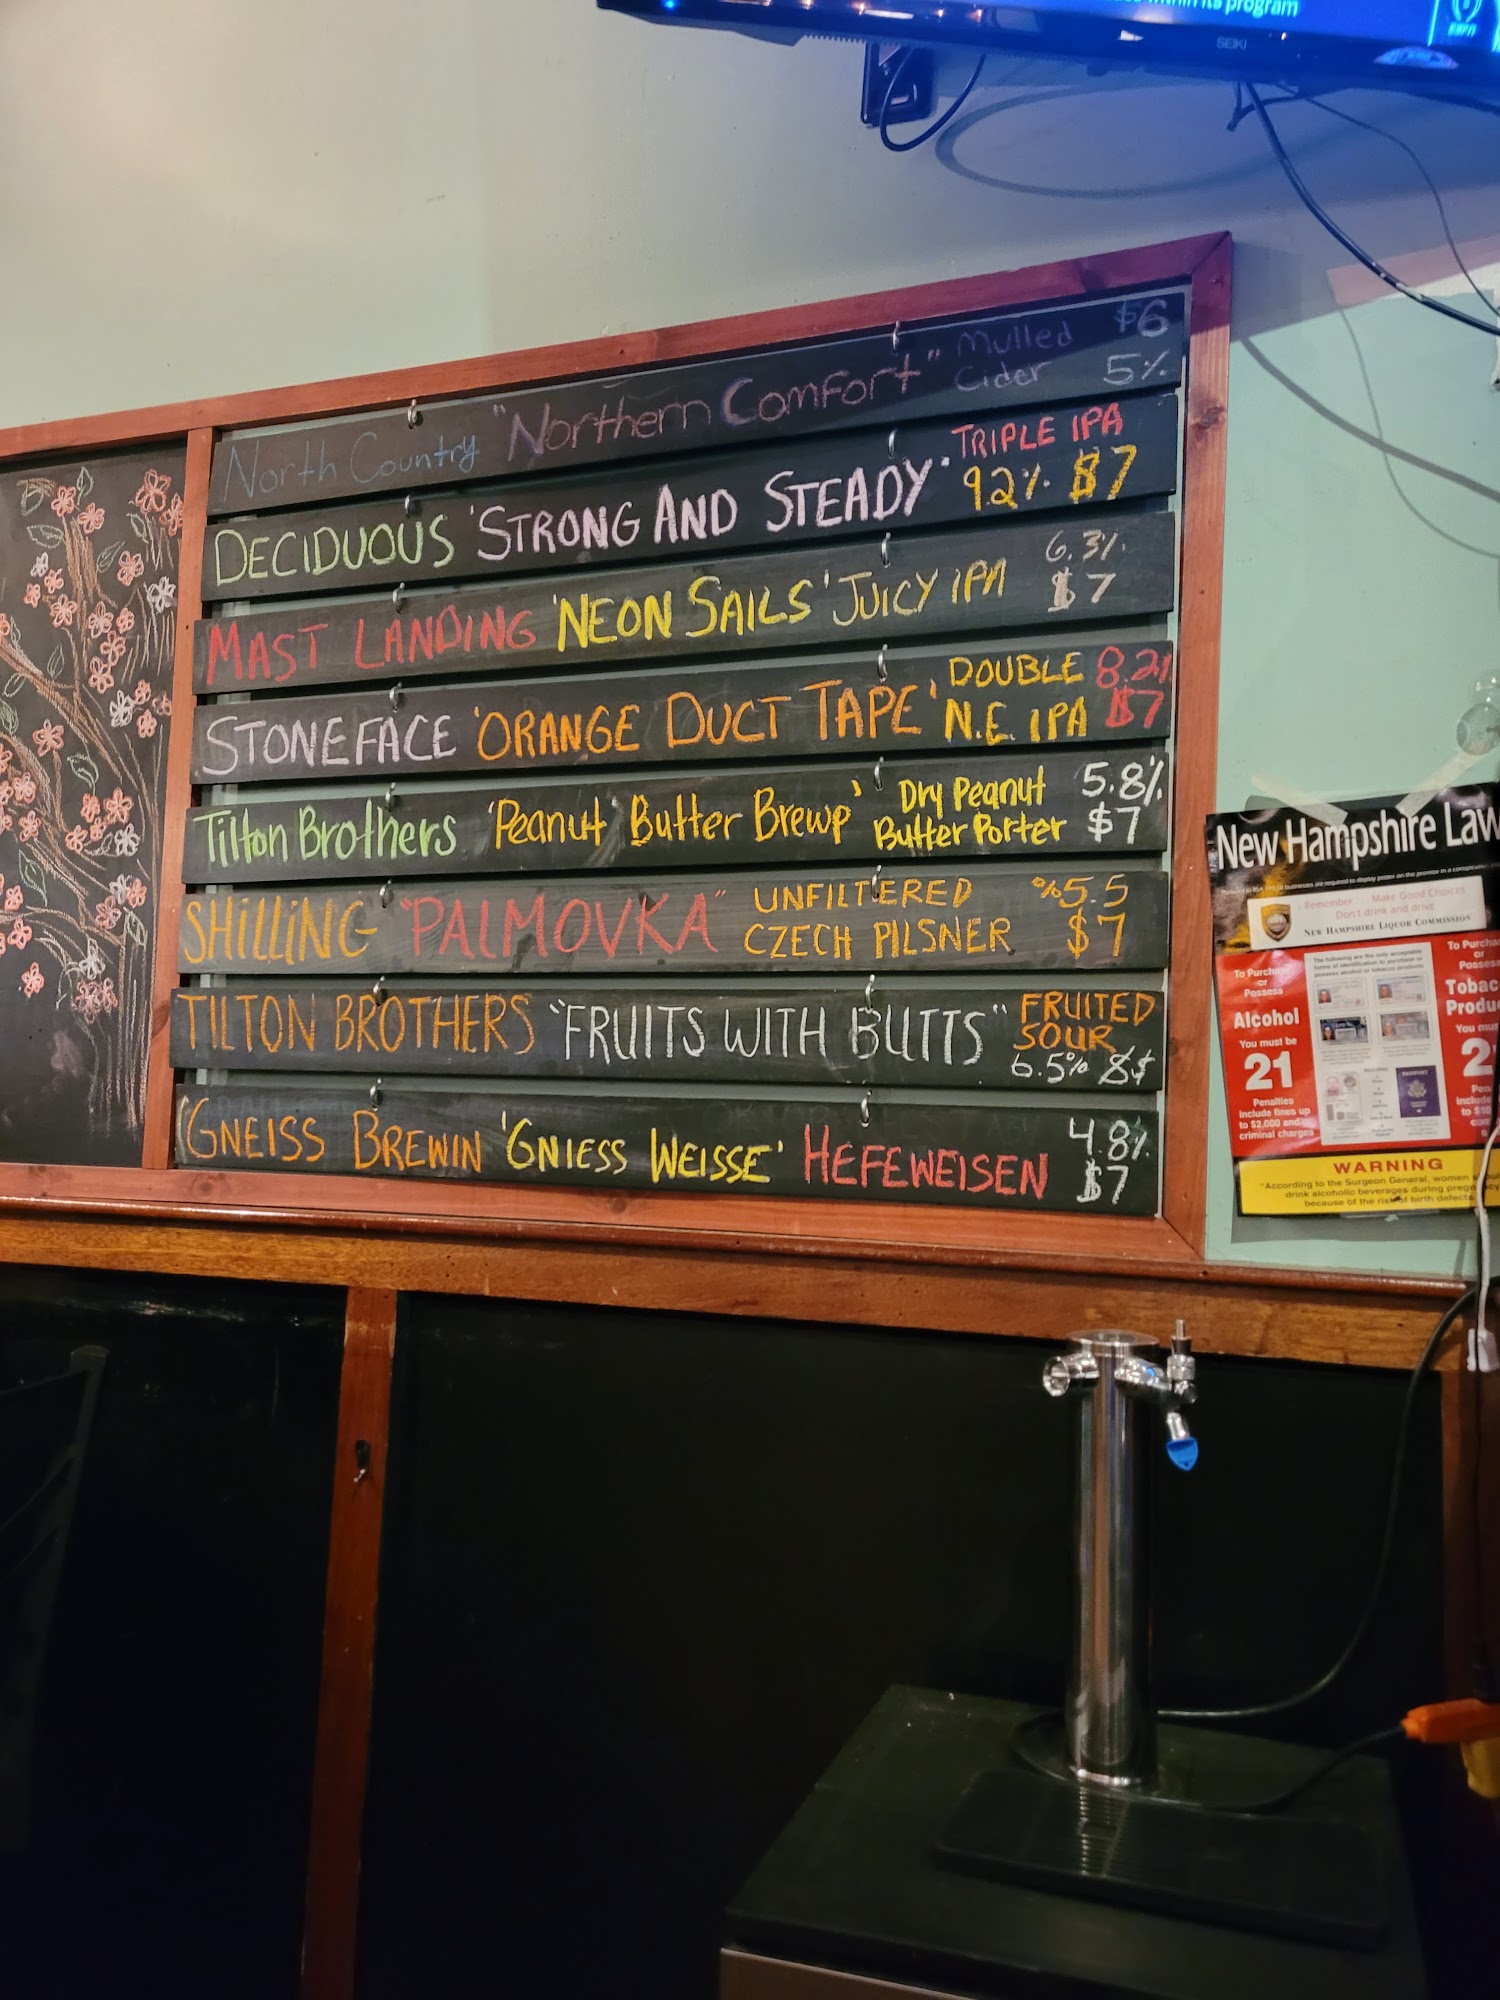 within its program
ESPN
SEIKI
North Country "Northern Comfort" Mulled Cider $6 5%
DECIDUOUS 'STRONG AND STEADY' TRIPLE IPA 9.2% $7
MAST LANDING 'NEON SAILS' JUICY IPA 6.3% $7
STONEFACE 'ORANGE DUCT TAPE' DOUBLE N.E. IPA 8.2% $7
Tilton Brothers 'Peanut Butter Brewp' Dry Peanut Butter Porter 5.8% $7
SHILLING "PALMOVKA" UNFILTERED CZECH PILSNER %5.5 $7
TILTON BROTHERS "FRUITS WITH BUTTS" FRUITED SOUR 6.5% 8$
GNEISS BREWIN 'GNIESS WEISSE' HEFEWEISEN 4.8% $7
New Hampshire Law
Remember Make Good Choices
Don't drink and drive
NEW HAMPSHIRE LIQUOR COMMISSION
To Purchase
or
Possess
Alcohol
You must be
21
Penalties
include fines up
to $2,000 and/
criminal charges
The following are the only acceptable
forms of identification to purchase or
possess alcohol or tobacco products
PASSPORT
To Purcha
or
Possess
Tobac
Produc
You mus
2
WARNING
"According to the Surgeon General, women
drink alcoholic beverages during preg cy
because of the risk of birth defects